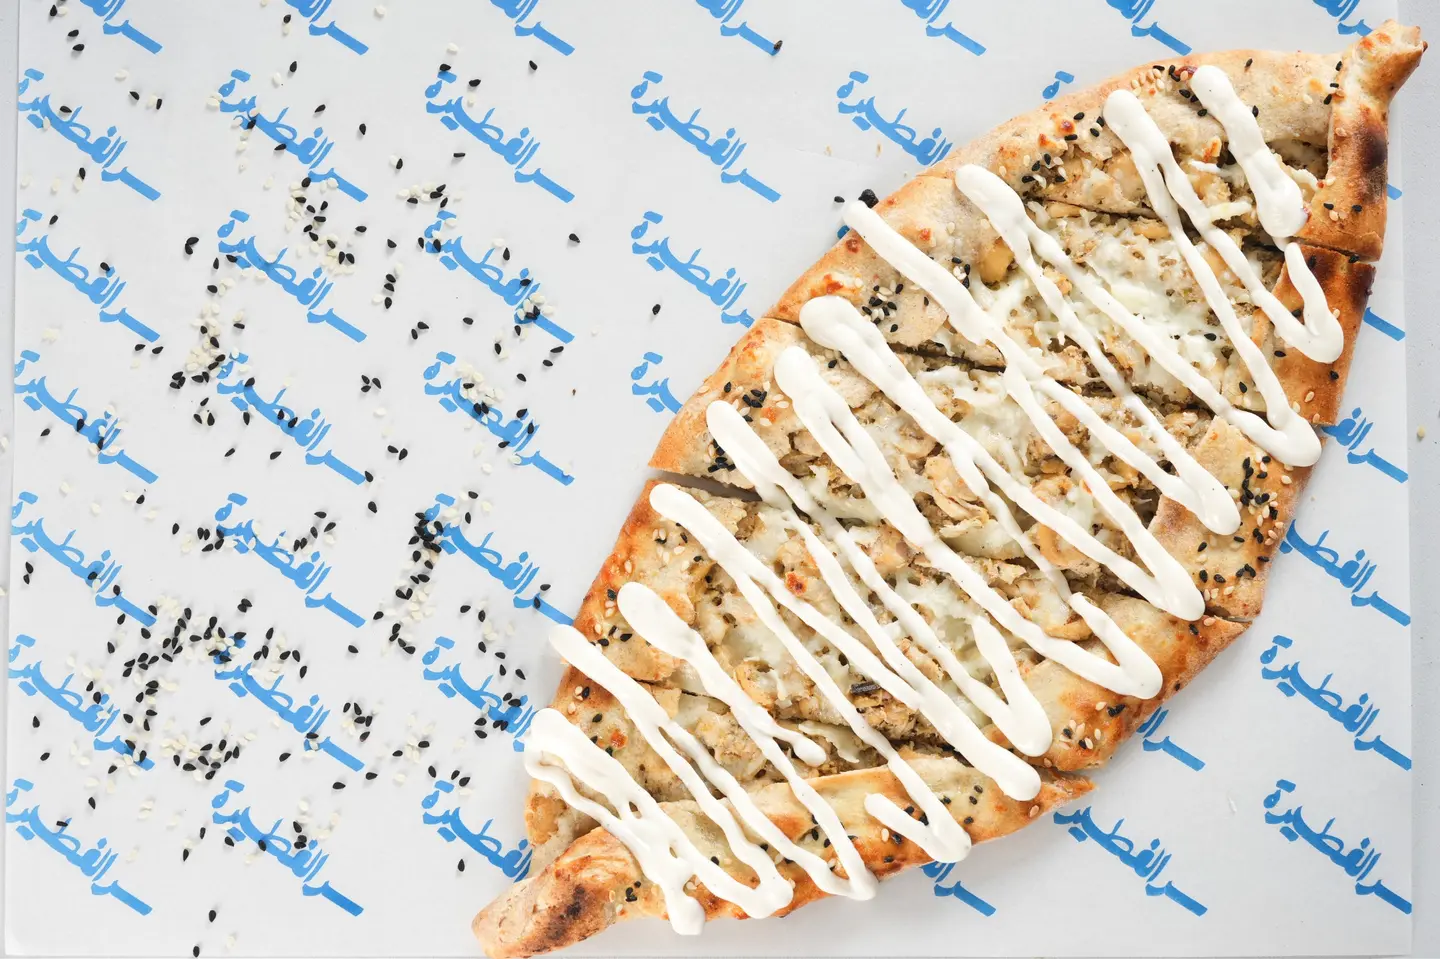 سر الفطيرة